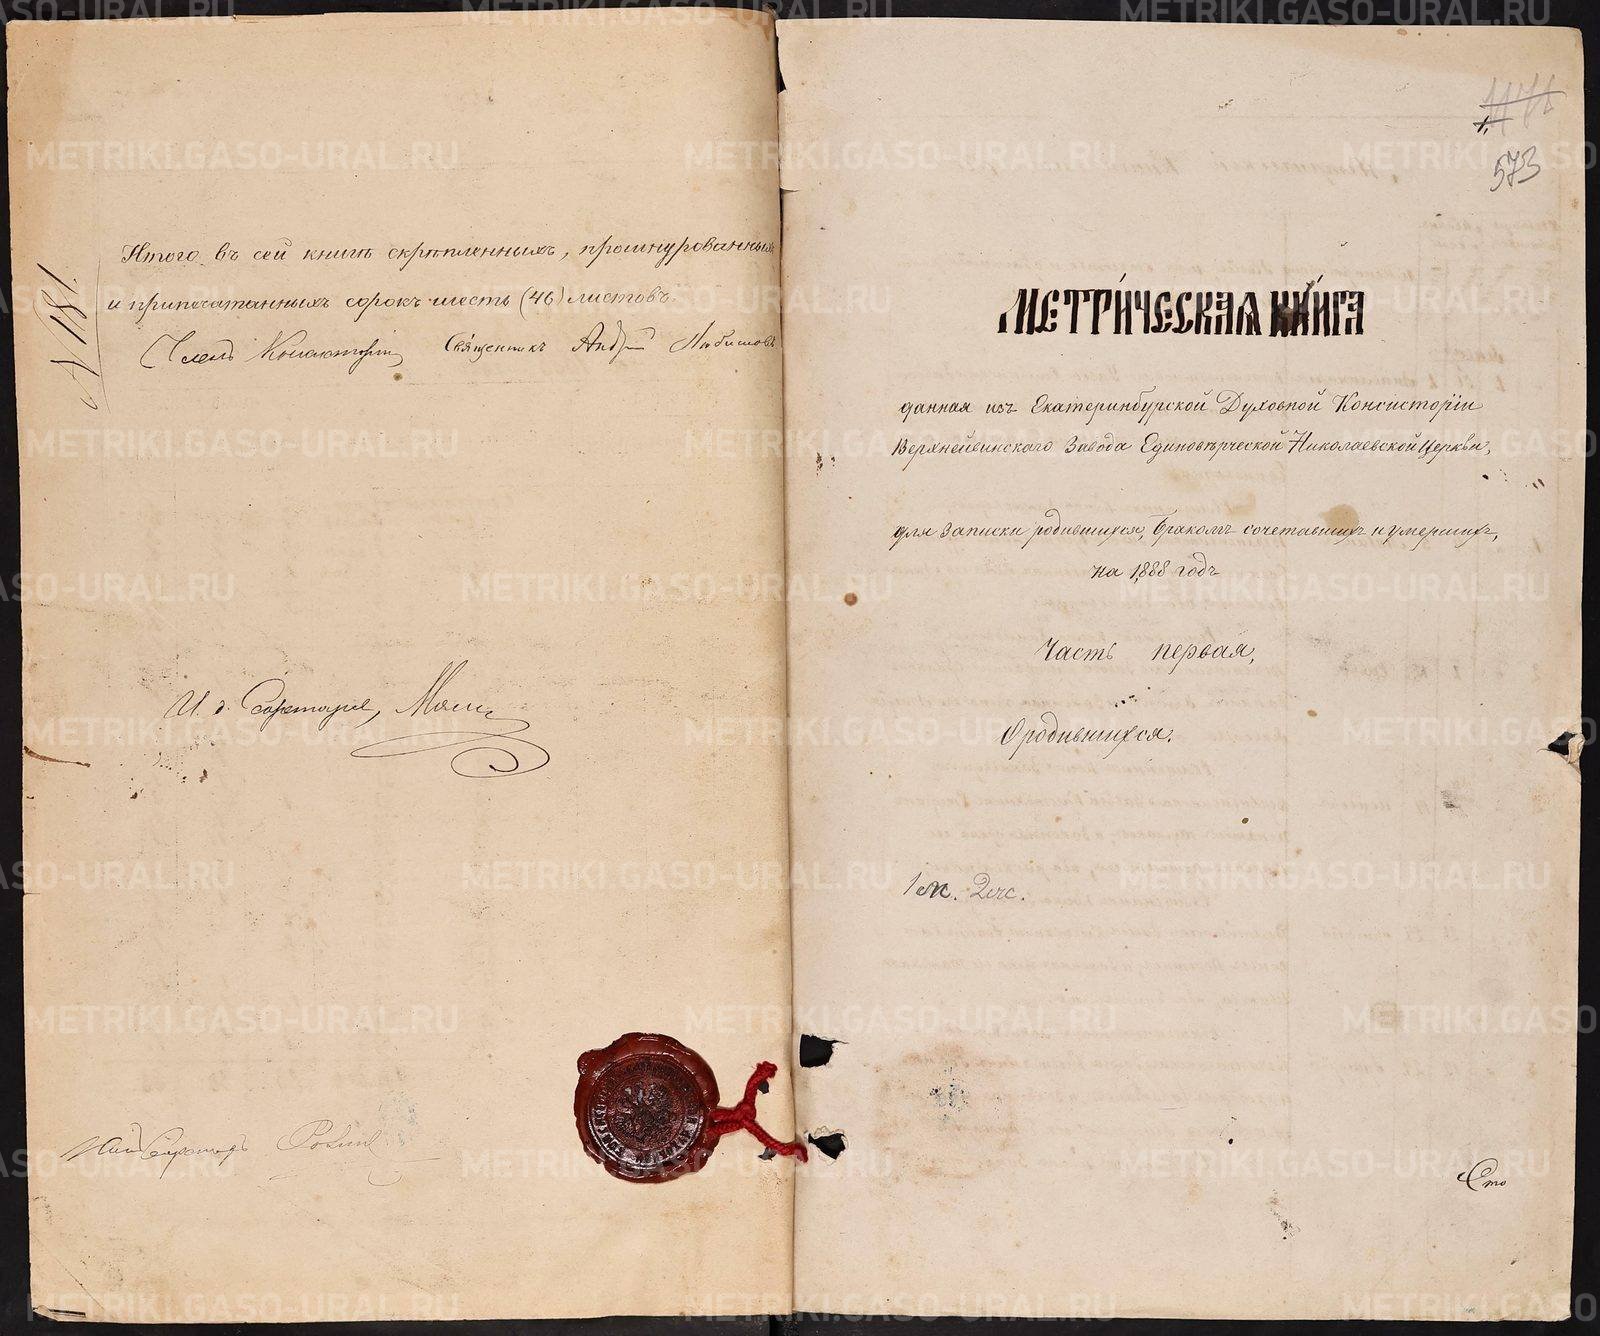 № 181.
Итого въ сей книгѣ скрѣпленныхъ, прошнурованныхъ
и припечатанныхъ сорокъ шесть (46) листовъ.
Членъ Консисторіи, Священникъ Андрей Любимовъ
И. д. Секретаря,
1.
573
МЕТРИЧЕСКАЯ КНИГА
данная изъ Екатеринбургской Духовной Консисторіи
Верхнейвинскаго Завода Единовѣрческой Николаевской Церкви,
для записки родившихся, бракомъ сочетавшихъ и умершихъ,
на 1888 годъ
Часть первая,
О родившихся.
Сто
METRIKI.GASO-URAL.RU